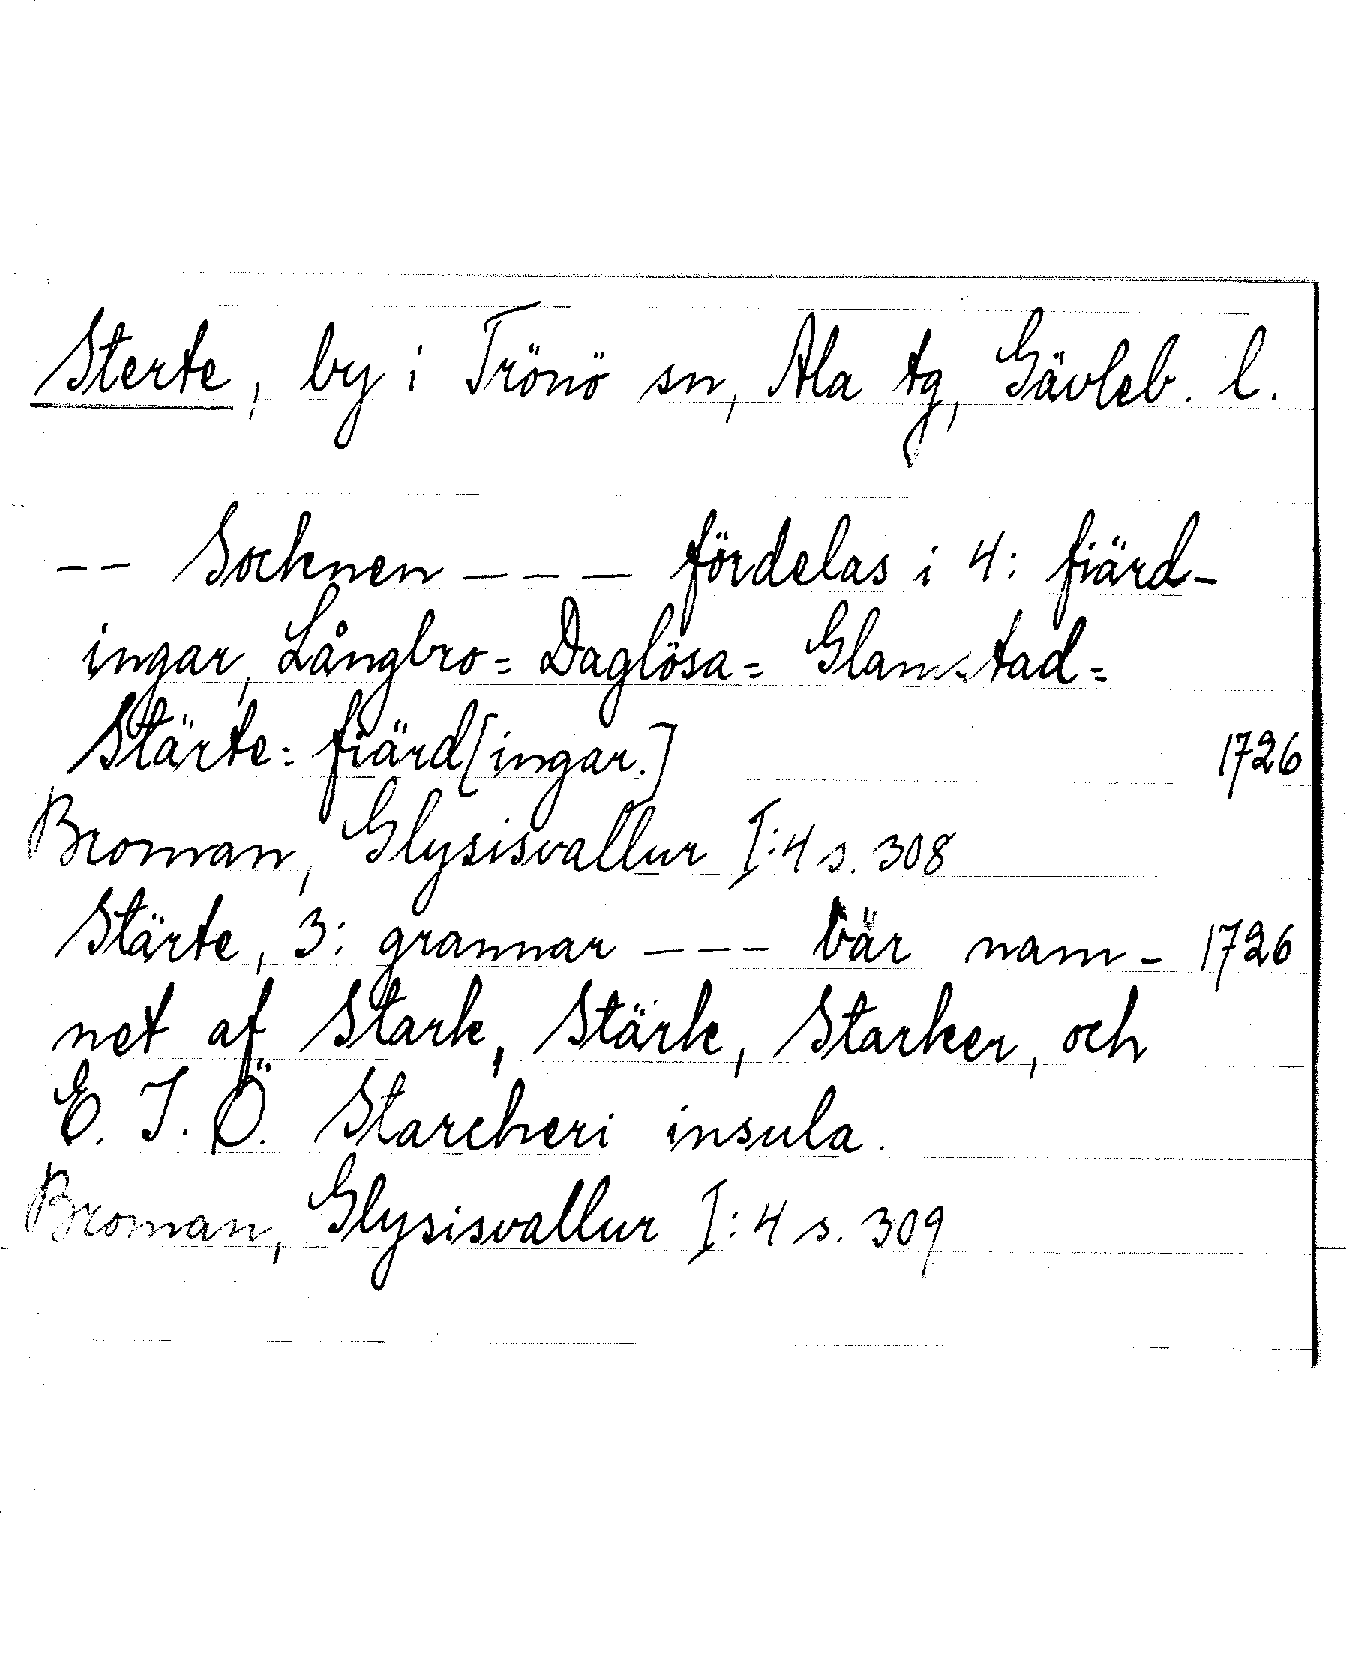 Sterte, by i Trönö sn, Ala tg, Gävleb. l.
-- Socknen --- fördelas i 4: fiärd-
ingar, Långbro= Daglösa= Glamstad=
Stärte= fiärd[ingar.] 1726
Broman, Glysisvallur I:4 s. 308
Stärte, 3: grannar --- bär nam- 1726
net af Stark, Stärk, Starker, och
E. I. Ö. Starckeri insula.
Broman, Glysisvallur I:4 s. 309